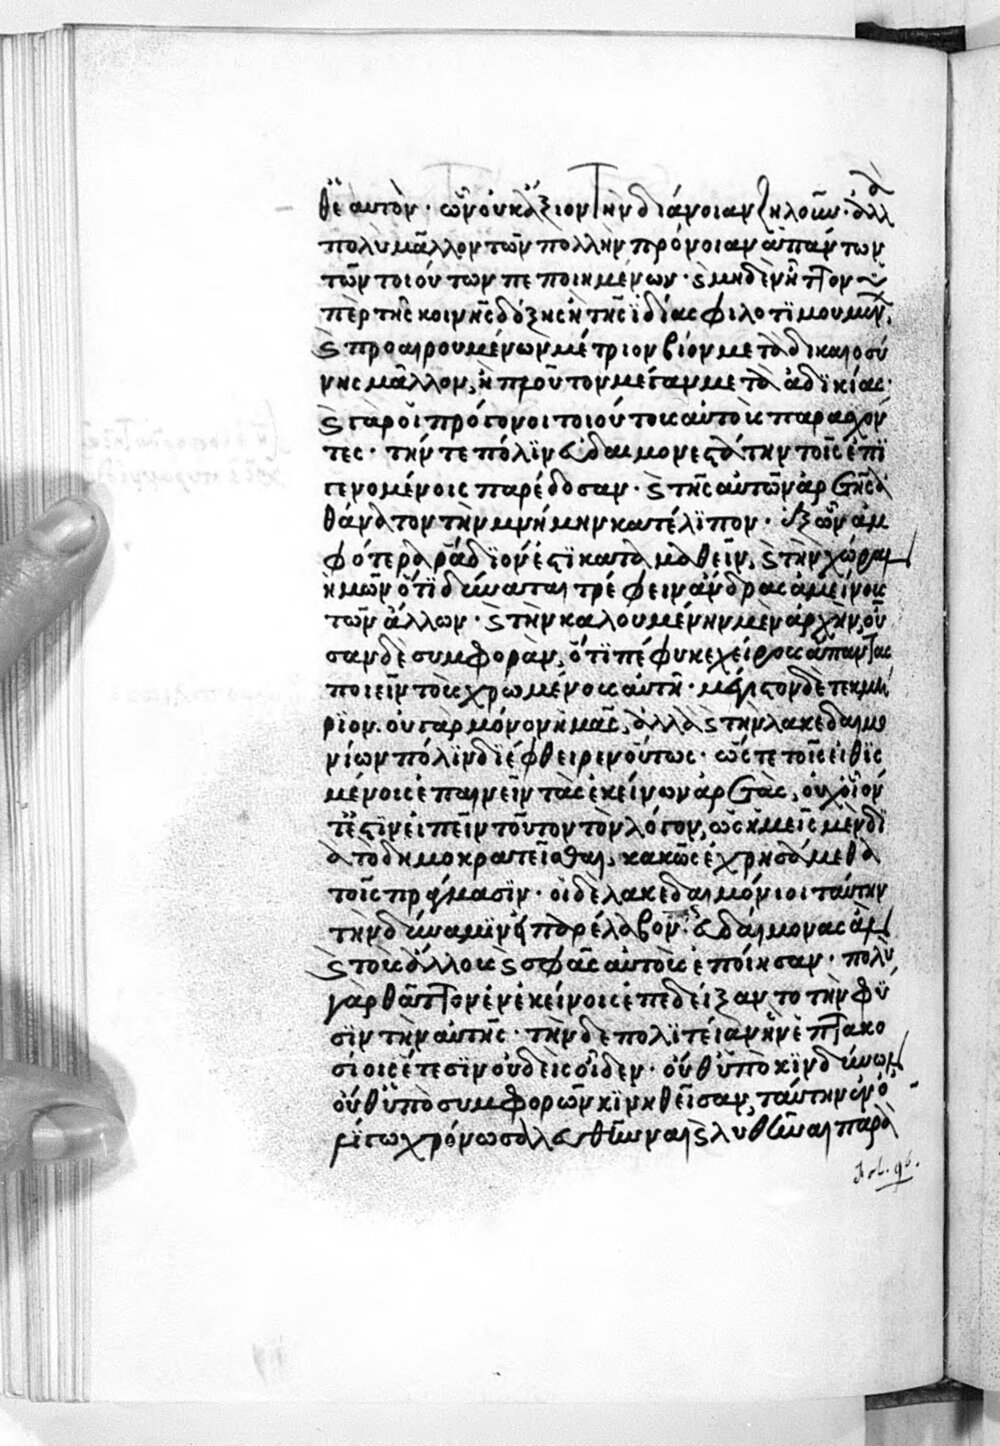 θε αυτόν· ὧν οὐκ ἄξιον τὴν διάνοιαν ζηλοῦν· ἀλλὰ
πολὺ μᾶλλον τῶν πολλὴν πρόνοιαν ἁπάντων
τῶν τοιούτων πεποιημένων· ϛ μηδὲν ἧττον ὑ
πὲρ τῆς κοινῆς δόξης ἢ τῆς ἰδίας φιλοτιμουμένων,
ϛ προαιρουμένων μέτριον βίον μετὰ δικαιοσύ
νης μᾶλλον, ἢ πλοῦτον μέγαν μετὰ ἀδικίας·
ϛ γὰρ οἱ πρόγονοι τοιούτους αὑτοὺς παρασχόν
τες· τήν τε πόλιν εὐδαιμονεστάτην τοῖς ἐπι
γενομένοις παρέδοσαν· ϛ τῆς αὑτῶν ἀρετῆς ἀ
θάνατον τὴν μνήμην κατέλιπον· ἐξ ὧν ἀμ
φότερα ῥάδιόν ἐστι καταμαθεῖν, ϛ τὴν χώραν
ἡμῶν ὅτι δύναται τρέφειν ἄνδρας ἀμείνους
τῶν ἄλλων· ϛ τὴν καλουμένην μὲν ἀρχὴν, οὖ
σαν δὲ συμφορὰν, ὅτι πέφυκε χείρους ἅπαντας
ποιεῖν τοὺς χρωμένους αὐτῇ· μέγιστον δὲ τεκμή
ριον· οὐ γὰρ μόνον ἡμᾶς, ἀλλὰ ϛ τὴν λακεδαιμο
νίων πόλιν διέφθειρεν οὕτως· ὥστε τοῖς εἰθισ
μένοις ἐπαινεῖν τὰς ἐκείνων ἀρετὰς, οὐχ οἷόν
τέ ἐστιν εἰπεῖν τοῦτον τὸν λόγον, ὡς ἡμεῖς μὲν δι
ὰ τὸ δημοκρατεῖσθαι, κακῶς ἐχρησάμεθα
τοῖς πράγμασιν· οἱ δὲ λακεδαιμόνιοι ταύτην
τὴν δύναμιν εἰ παρέλαβον· εὐδαίμονας ἂν
ϛ τοὺς ἄλλους ϛ σφᾶς αὐτοὺς ἐποίησαν· πολὺ
γὰρ θᾶττον ἐν ἐκείνοις ἐπεδείξαντο τὴν φύ
σιν τὴν αὑτῆς· τὴν δὲ πολιτείαν ἣν ἑπτακο
σίοις ἔτεσιν οὐδεὶς οἶδεν· οὔθ᾽ ὑπὸ κινδύνων
οὔθ᾽ ὑπὸ συμφορῶν κινηθεῖσαν, ταύτην ἐν ὀ
λίγῳ χρόνῳ σαλευθῆναι ϛ λυθῆναι παρὰ